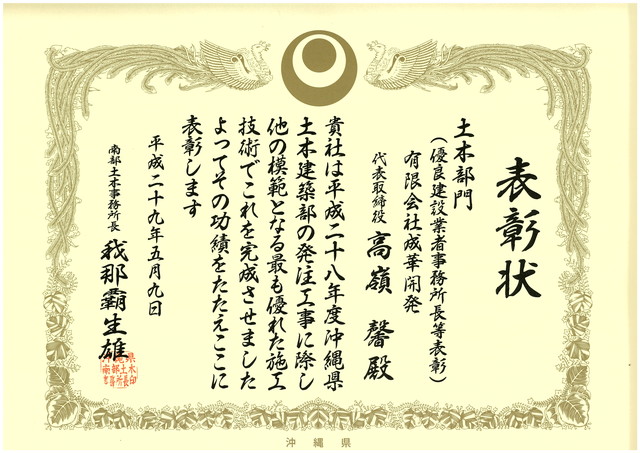 表彰状
土木部門
（優良建設業者事務所長等表彰）
有限会社成華開発
代表取締役 高嶺 馨殿
貴社は平成二十八年度沖縄県
土木建築部の発注工事に際し
他の模範となる最も優れた施工
技術でこれを完成させました
よってその功績をたたえここに
表彰します
平成二十九年五月九日
南部土木事務所長 我那覇生雄
沖縄県